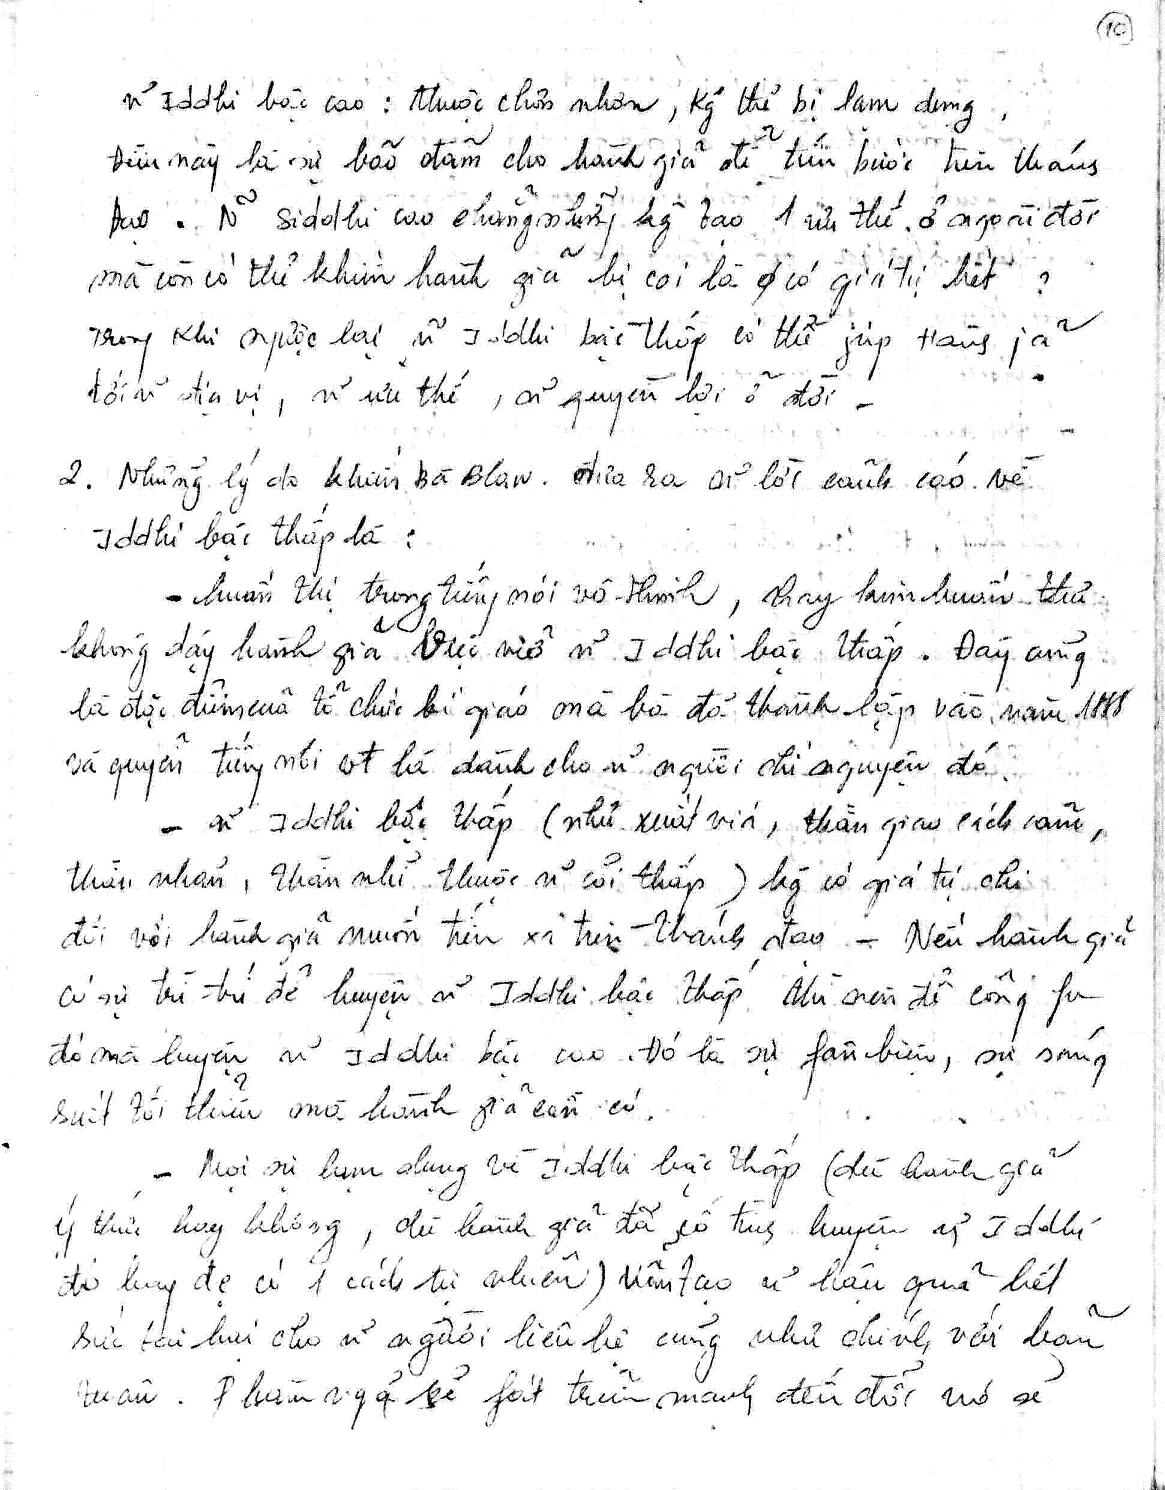 10
n~ Iddhi bậc cao : thuộc chơn nhơn, kg thể bị lạm dụng,
Điều này là sự bảo đảm cho hành giả để tiến bước trên thánh
đạo. N~ Siddhi cao chẳng những kg tạo 1 ưu thế ở ngoài đời
mà còn có thể khiến hành giả bị coi là ø có giá trị hết ?
Trong khi ngược lại n~ Iddhi bậc thấp có thể júp Hành jả
tới n~ địa vị, n~ ưu thế, n~ quyền lợi ở đời -
2. Những lý do khiến Bà Blav. đưa ra n~ lời cảnh cáo về
Iddhi bậc thấp là :
- huấn thị trong tiếng nói vô thinh, hay kim huấn thư
không dạy hành giả việc mở n~ Iddhi bậc thấp. Đây cũng
là đặc điểm của tổ chức bí giáo mà bà đã thành lập vào năm 1888
và quyển tiếng nói vt là dành cho n~ người chí nguyện đó.
- n~ Iddhi bậc thấp (như xuất vía, thần giao cách cảm,
thần nhãn, thần nhĩ thuộc n~ cõi thấp) kg có giá trị chi
đối với hành giả muốn tiến xa trên thánh đạo - Nếu hành giả
có sự trì trí để luyện n~ Iddhi bậc thấp thì nên để công fu
đó mà luyện n~ Iddhi bậc cao. Đó là sự fân biện, sự sáng
suốt tối thiểu mà hành giả cần có.
- Mọi sự lạm dụng về Iddhi bậc thấp (dù hành giả
ý thức hay không, dù hành giả đã cố tình luyện n~ Iddhi
đó hay đã có 1 cách tự nhiên) vẫn tạo n~ hậu quả hết
sức tai hại cho n~ người liên hệ cũng như chính với bản
thân. Phàm ngã sẽ fát triển mạnh đến đổi nó sẽ